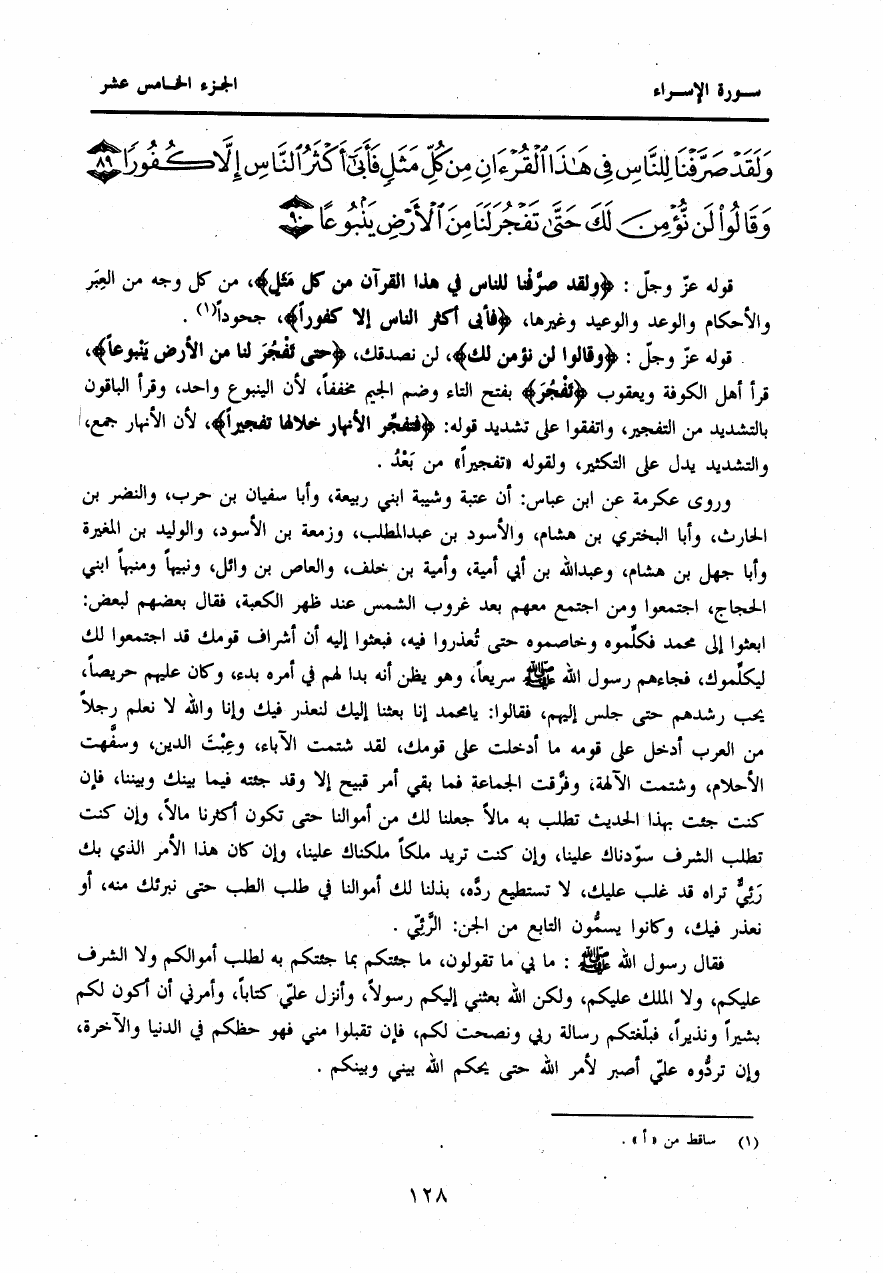 سورة الإسراء
الجزء الخامس عشر
وَلَقَدْ صَرَّفْنَا لِلنَّاسِ فِي هَٰذَا ٱلْقُرْءَانِ مِن كُلِّ مَثَلٍ فَأَبَىٰٓ أَكْثَرُ ٱلنَّاسِ إِلَّا كُفُورًا ﴿٨٩﴾
وَقَالُوا۟ لَن نُّؤْمِنَ لَكَ حَتَّىٰ تَفْجُرَ لَنَا مِنَ ٱلْأَرْضِ يَنۢبُوعًا ﴿٩٠﴾
قوله عزّ وجلّ : ﴿ولقد صرَّفْنا للناس في هذا القرآن من كل مَثَلٍ﴾، من كل وجه من العِبَر
والأحكام والوعد والوعيد وغيرها، ﴿فأبى أكثر الناس إلا كفوراً﴾، جحوداً(١) .
قوله عزّ وجلّ : ﴿وقالوا لن نؤمن لك﴾، لن نصدقك، ﴿حتى تَفْجُرَ لنا من الأرض يَنْبوعاً﴾،
قرأ أهل الكوفة ويعقوب ﴿تَفْجُرَ﴾ بفتح التاء وضم الجيم مخففاً، لأن الينبوع واحد، وقرأ الباقون
بالتشديد من التفجير، واتفقوا على تشديد قوله: ﴿فتفجِّر الأنهار خلالها تفجيراً﴾، لأن الأنهار جمع،
والتشديد يدل على التكثير، ولقوله «تفجيراً» من بَعْدُ .
وروى عكرمة عن ابن عباس: أن عتبة وشيبة ابني ربيعة، وأبا سفيان بن حرب، والنضر بن
الحارث، وأبا البختري بن هشام، والأسود بن عبدالمطلب، وزمعة بن الأسود، والوليد بن المغيرة
وأبا جهل بن هشام، وعبدالله بن أبي أمية، وأمية بن خلف، والعاص بن وائل، ونبيهاً ومنبهاً ابني
الحجاج، اجتمعوا ومن اجتمع معهم بعد غروب الشمس عند ظهر الكعبة، فقال بعضهم لبعض:
ابعثوا إلى محمد فكلِّموه وخاصموه حتى تُعذروا فيه، فبعثوا إليه أن أشراف قومك قد اجتمعوا لك
ليكلّموك، فجاءهم رسول الله ﷺ سريعاً، وهو يظن أنه بدا لهم في أمره بدء، وكان عليهم حريصاً،
يحب رشدهم حتى جلس إليهم، فقالوا: يامحمد إنا بعثنا إليك لنعذر فيك وإنا والله لا نعلم رجلاً
من العرب أدخل على قومه ما أدخلت على قومك، لقد شتمت الآباء، وعِبْتَ الدين، وسفَّهت
الأحلام، وشتمت الآلهة، وفرَّقت الجماعة فما بقي أمر قبيح إلا وقد جئته فيما بينك وبيننا، فإن
كنت جئت بهذا الحديث تطلب به مالاً جعلنا لك من أموالنا حتى تكون أكثرنا مالاً، وإن كنت
تطلب الشرف سوّدناك علينا، وإن كنت تريد ملكاً ملكناك علينا، وإن كان هذا الأمر الذي بك
رَئِيٌّ تراه قد غلب عليك، لا تستطيع ردَّه، بذلنا لك أموالنا في طلب الطب حتى نبرئك منه، أو
نعذر فيك، وكانوا يسمُّون التابع من الجن: الرَّئِيّ .
فقال رسول الله ﷺ : ما بي ما تقولون، ما جئتكم بما جئتكم به لطلب أموالكم ولا الشرف
عليكم، ولا الملك عليكم، ولكن الله بعثني إليكم رسولاً، وأنزل عليّ كتاباً، وأمرني أن أكون لكم
بشيراً ونذيراً، فبلّغتكم رسالة ربي ونصحت لكم، فإن تقبلوا مني فهو حظكم في الدنيا والآخرة،
وإن تردُّوه عليّ أصبر لأمر الله حتى يحكم الله بيني وبينكم .
(١) ساقط من «أ» .
١٢٨